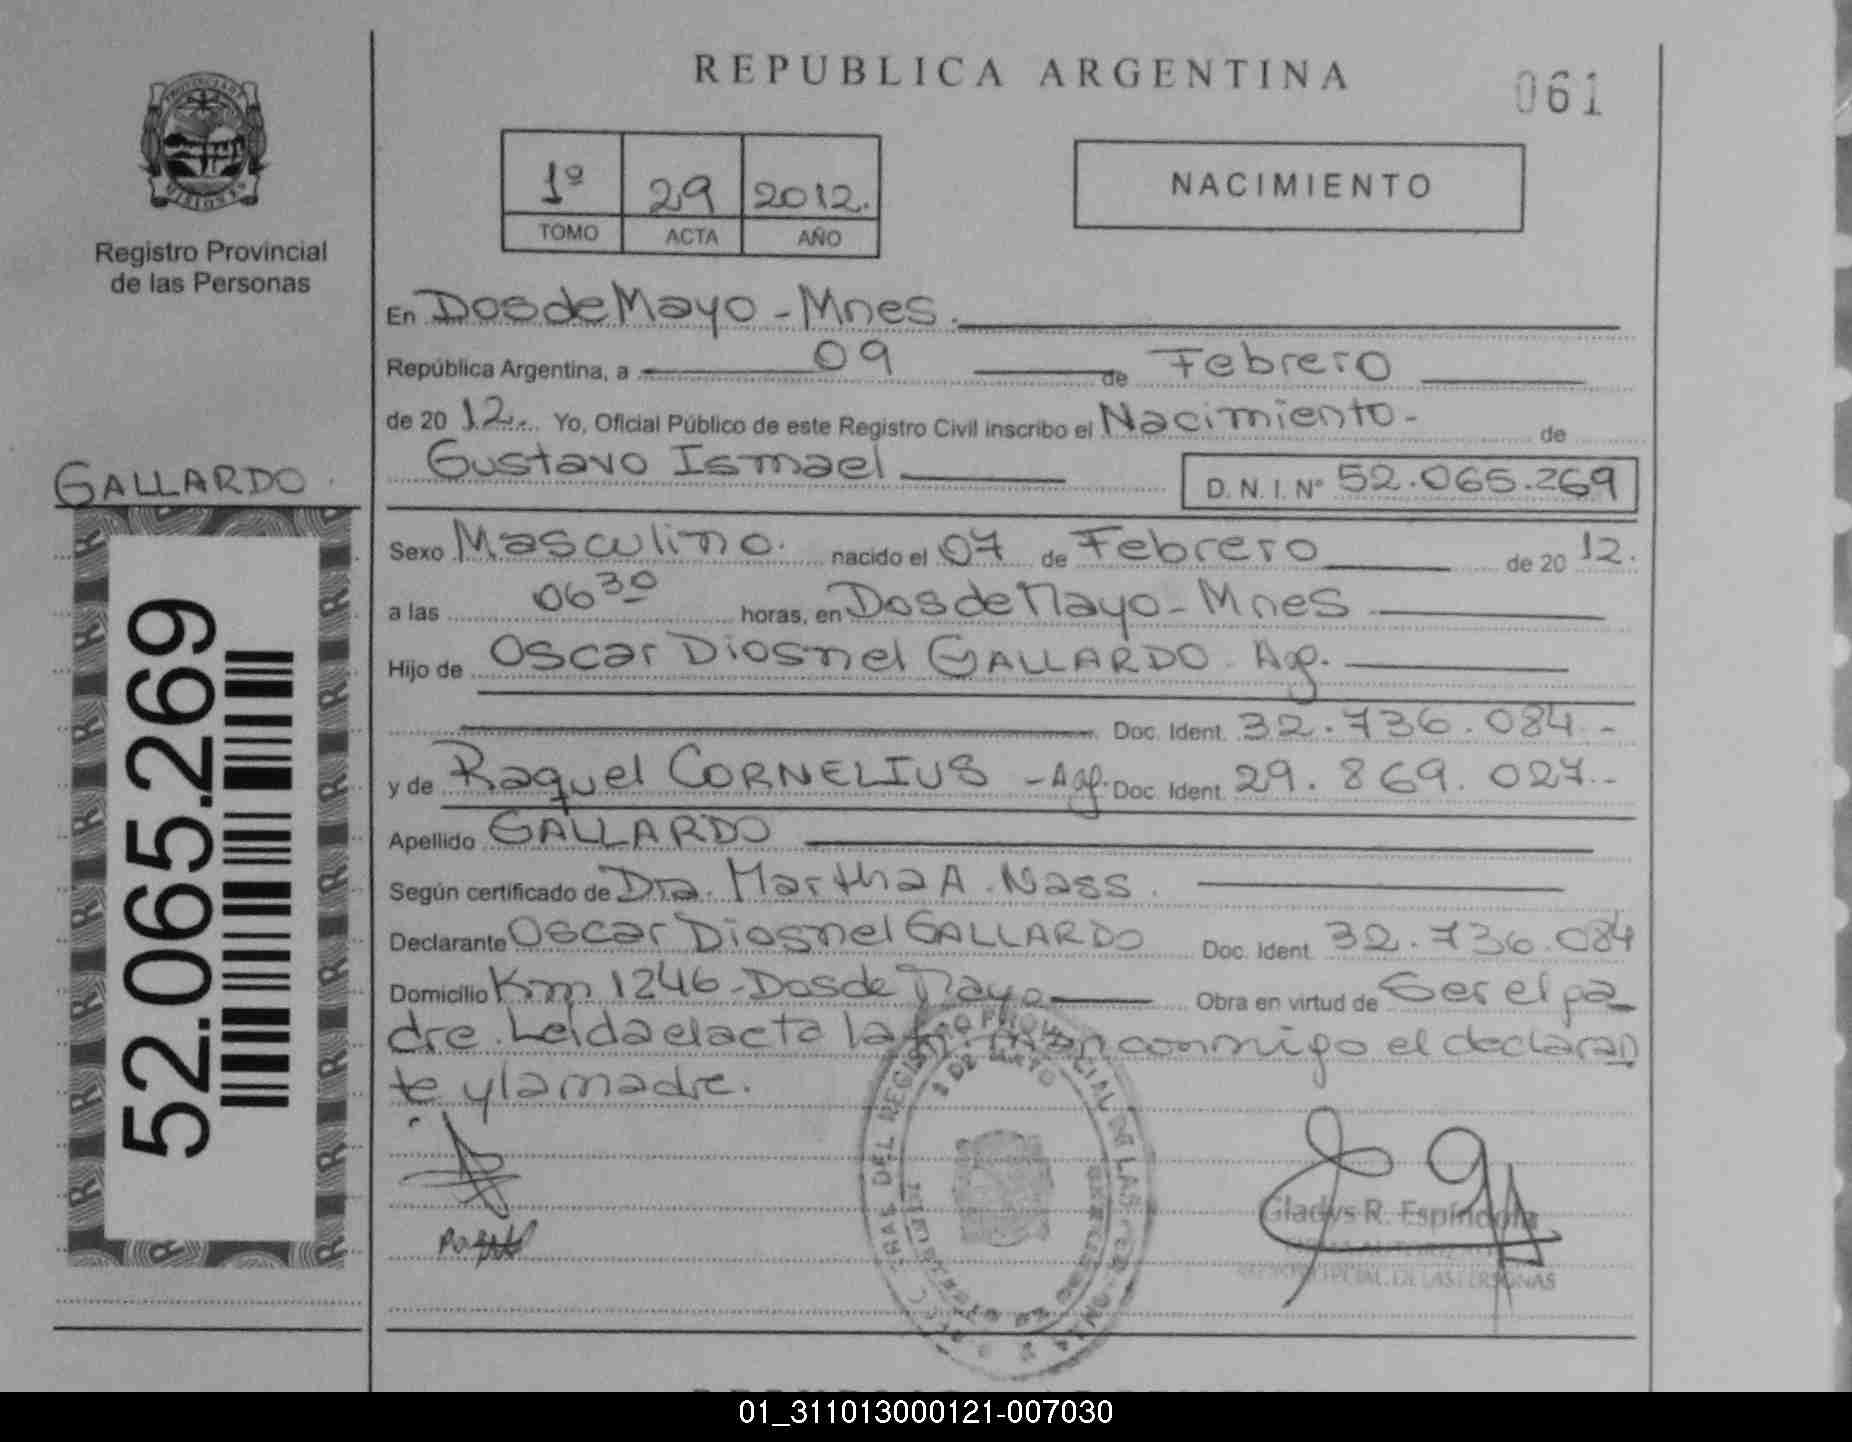 REPUBLICA ARGENTINA
061
PROVINCIA DE
MISIONES
Registro Provincial
de las Personas
1º 29 2012.
TOMO ACTA AÑO
NACIMIENTO
En Dos de Mayo - Mnes.
República Argentina, a 09 de Febrero
de 20 12. Yo, Oficial Público de este Registro Civil inscribo el Nacimiento - de
Gustavo Ismael D.N.I. Nº 52.065.269
GALLARDO
52.065.269
Sexo Masculino. nacido el 07 de Febrero de 20 12.
a las 06 30 horas, en Dos de Mayo - Mnes
Hijo de Oscar Diosnel GALLARDO. Ag.
Doc. Ident. 32.736.084.-
y de Raquel CORNELIUS - Ag. Doc. Ident. 29.869.027.-
Apellido GALLARDO
Según certificado de Dra. Martha A. Nass.
Declarante Oscar Diosnel GALLARDO Doc. Ident. 32.736.084
Domicilio Km 1246 - Dos de Mayo Obra en virtud de Ser el pa
dre. Leida el acta la firman conmigo el declaran
te y la madre.
2 DE MAYO
Gladys R. Espíndola
01_311013000121-007030